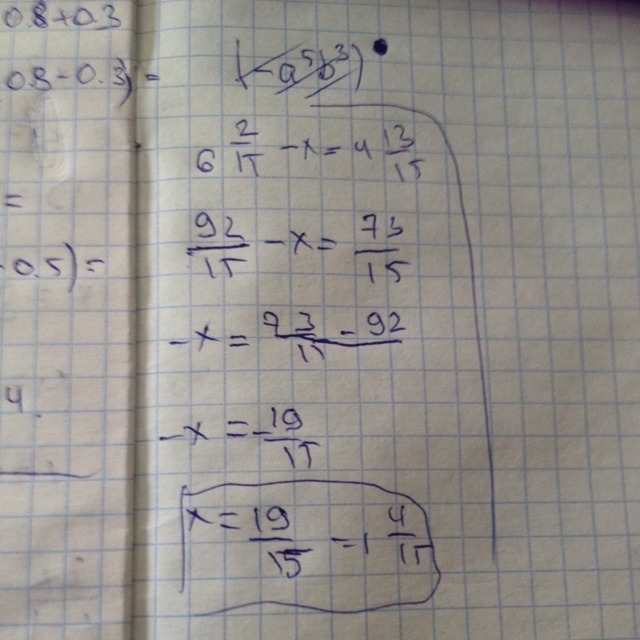 0.8+0.3
0.8-0.3)=
=
0.5)=
4
(-a⁵b³)
6 2/15 -x=4 13/15
92/15 -x= 73/15
-x= 73-92/15
-x=-19/15
x=19/15 =1 4/15